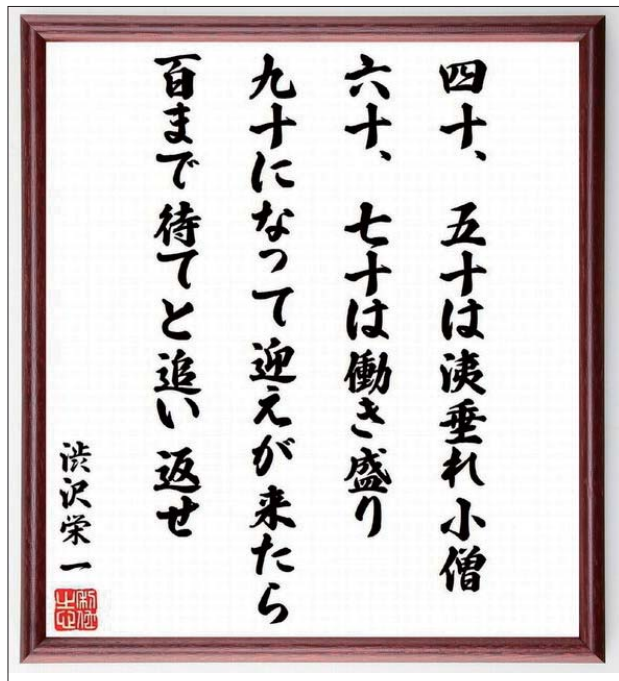 四十、五十は洟垂れ小僧
六十、七十は働き盛り
九十になって迎えが来たら
百まで待てと追い返せ
渋沢栄一